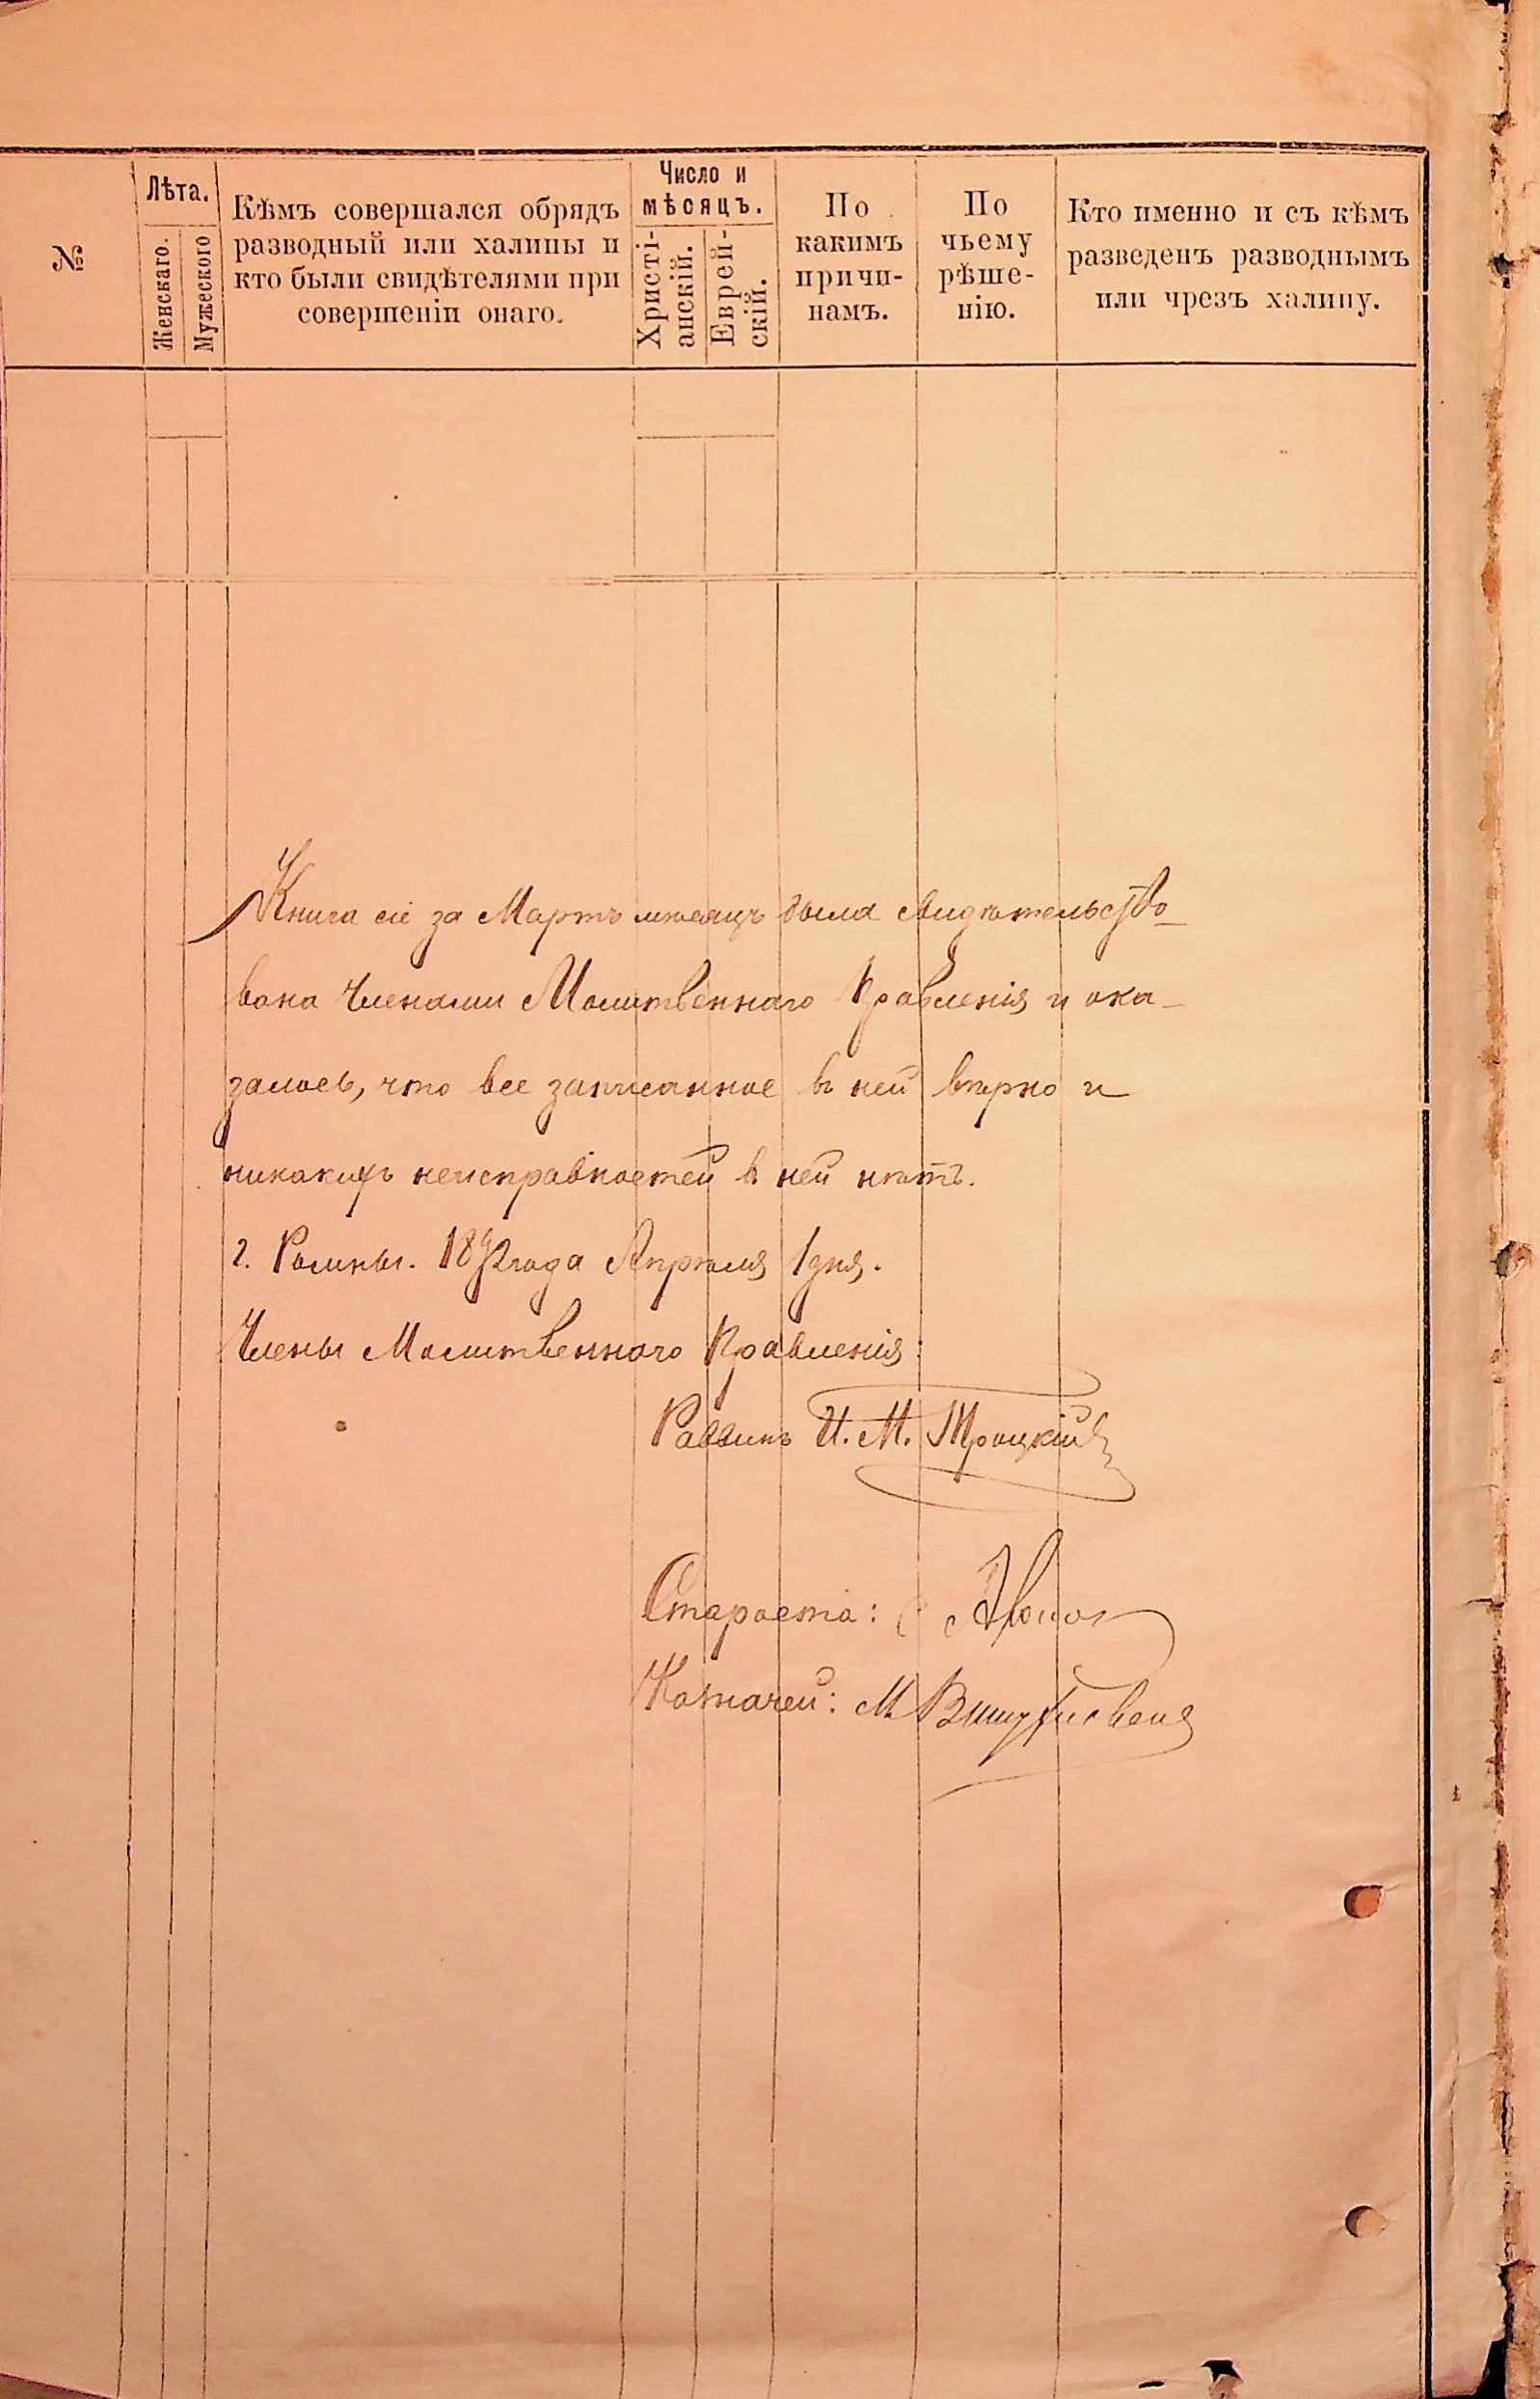 №
Лѣта.
Женскаго.
Мужескаго
Кѣмъ совершался обрядъ
разводный или халицы и
кто были свидѣтелями при
совершеніи онаго.
Число и
мѣсяцъ.
Христі-
анскій.
Еврей-
скій.
По
какимъ
причи-
намъ.
По
чьему
рѣше-
нію.
Кто именно и съ кѣмъ
разведенъ разводнымъ
или чрезъ халицу.
Книга сіе за Мартъ мѣсяцъ была свидѣтельство-
вана Членами Молитвеннаго Правленія и ока-
залось, что все записанное въ ней вѣрно и
никакихъ неисправностей въ ней нѣтъ.
г. Ромны. 1892 года Апрѣля 1 дня.
Члены Молитвеннаго Правленія:
Раввинъ И. М. Троцкій
Староста:
Казначей: М